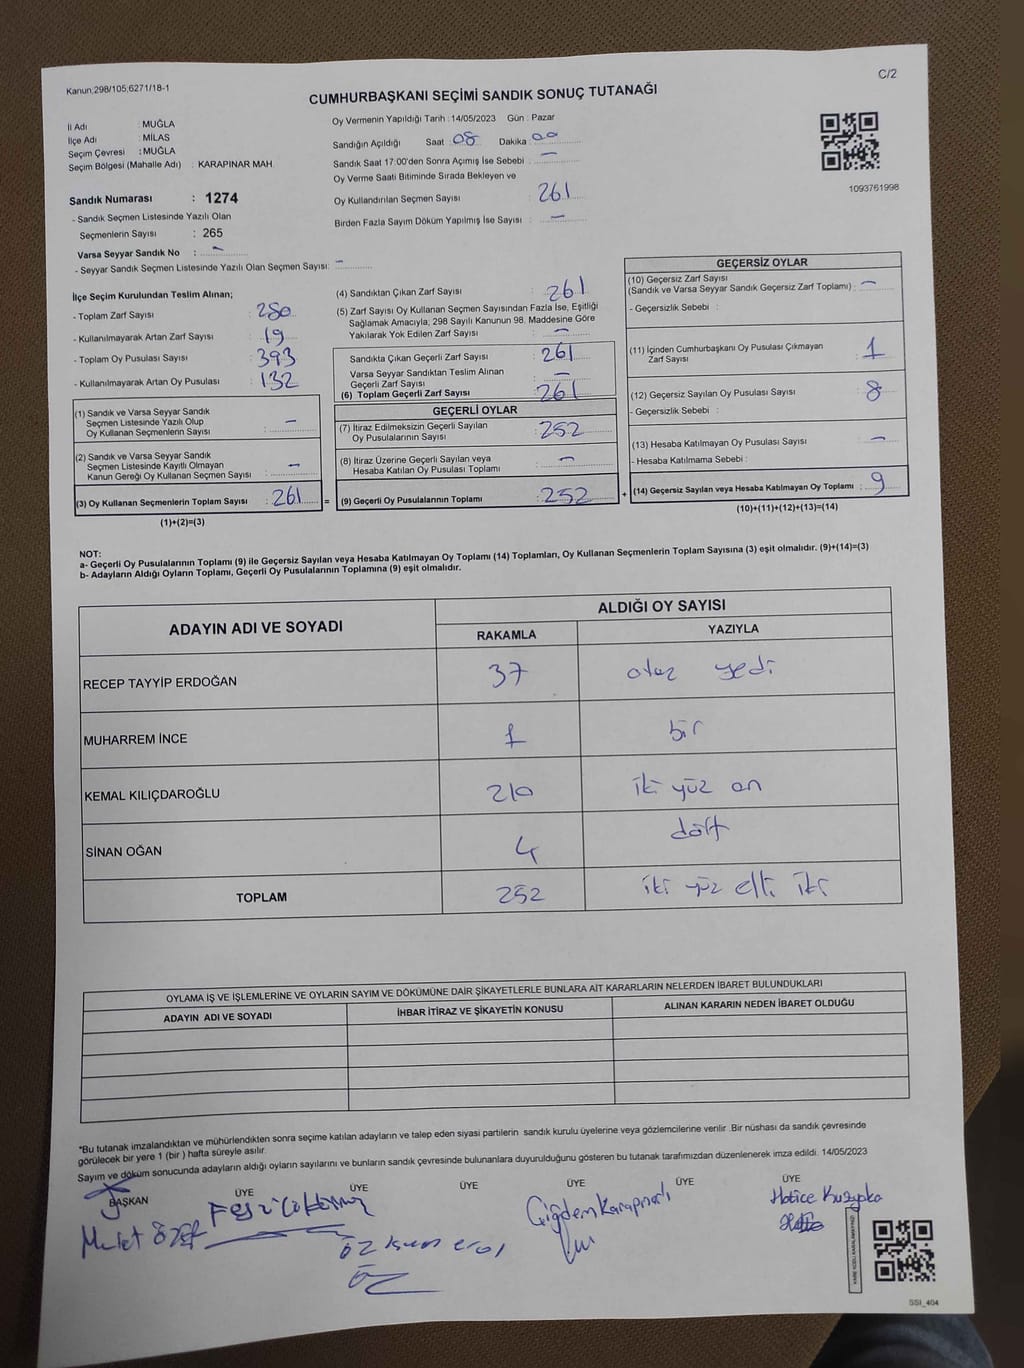 Kanun;298/105;6271/18-1
C/2
CUMHURBAŞKANI SEÇİMİ SANDIK SONUÇ TUTANAĞI
İl Adı : MUĞLA
İlçe Adı : MİLAS
Seçim Çevresi : MUĞLA
Seçim Bölgesi (Mahalle Adı) : KARAPINAR MAH.
Oy Vermenin Yapıldığı Tarih : 14/05/2023 Gün : Pazar
Sandığın Açıldığı Saat 08 Dakika : 00
Sandık Saat 17:00'den Sonra Açımış İse Sebebi : —
Oy Verme Saati Bitiminde Sırada Bekleyen ve
Oy Kullandırılan Seçmen Sayısı : 261
Birden Fazla Sayım Döküm Yapılmış İse Sayısı : —
1093761998
Sandık Numarası : 1274
- Sandık Seçmen Listesinde Yazılı Olan
Seçmenlerin Sayısı : 265
Varsa Seyyar Sandık No : —
- Seyyar Sandık Seçmen Listesinde Yazılı Olan Seçmen Sayısı: —
İlçe Seçim Kurulundan Teslim Alınan;
- Toplam Zarf Sayısı : 280
- Kullanılmayarak Artan Zarf Sayısı : 19
- Toplam Oy Pusulası Sayısı : 393
- Kullanılmayarak Artan Oy Pusulası : 132
(1) Sandık ve Varsa Seyyar Sandık
Seçmen Listesinde Yazılı Olup
Oy Kullanan Seçmenlerin Sayısı : —
(2) Sandık ve Varsa Seyyar Sandık
Seçmen Listesinde Kayıtlı Olmayan
Kanun Gereği Oy Kullanan Seçmen Sayısı : —
(3) Oy Kullanan Seçmenlerin Toplam Sayısı : 261 =
(1)+(2)=(3)
(4) Sandıktan Çıkan Zarf Sayısı : 261
(5) Zarf Sayısı Oy Kullanan Seçmen Sayısından Fazla İse, Eşitliği
Sağlamak Amacıyla, 298 Sayılı Kanunun 98. Maddesine Göre
Yakılarak Yok Edilen Zarf Sayısı : —
Sandıkta Çıkan Geçerli Zarf Sayısı : 261
Varsa Seyyar Sandıktan Teslim Alınan
Geçerli Zarf Sayısı : —
(6) Toplam Geçerli Zarf Sayısı : 261
GEÇERLİ OYLAR
(7) İtiraz Edilmeksizin Geçerli Sayılan
Oy Pusulalarının Sayısı : 252
(8) İtiraz Üzerine Geçerli Sayılan veya
Hesaba Katılan Oy Pusulası Toplamı : —
(9) Geçerli Oy Pusulalarının Toplamı : 252 +
GEÇERSİZ OYLAR
(10) Geçersiz Zarf Sayısı
(Sandık ve Varsa Seyyar Sandık Geçersiz Zarf Toplamı) : —
- Geçersizlik Sebebi :
(11) İçinden Cumhurbaşkanı Oy Pusulası Çıkmayan
Zarf Sayısı : 1
(12) Geçersiz Sayılan Oy Pusulası Sayısı : 8
- Geçersizlik Sebebi :
(13) Hesaba Katılmayan Oy Pusulası Sayısı : —
- Hesaba Katılmama Sebebi :
(14) Geçersiz Sayılan veya Hesaba Katılmayan Oy Toplamı : 9
(10)+(11)+(12)+(13)=(14)
NOT:
a- Geçerli Oy Pusulalarının Toplamı (9) ile Geçersiz Sayılan veya Hesaba Katılmayan Oy Toplamı (14) Toplamları, Oy Kullanan Seçmenlerin Toplam Sayısına (3) eşit olmalıdır. (9)+(14)=(3)
b- Adayların Aldığı Oyların Toplamı, Geçerli Oy Pusulalarının Toplamına (9) eşit olmalıdır.
ADAYIN ADI VE SOYADI
ALDIĞI OY SAYISI
RAKAMLA YAZIYLA
RECEP TAYYİP ERDOĞAN 37 otuz yedi
MUHARREM İNCE 1 bir
KEMAL KILIÇDAROĞLU 210 iki yüz on
SİNAN OĞAN 4 dört
TOPLAM 252 iki yüz elli iki
OYLAMA İŞ VE İŞLEMLERİNE VE OYLARIN SAYIM VE DÖKÜMÜNE DAİR ŞİKAYETLERLE BUNLARA AİT KARARLARIN NELERDEN İBARET BULUNDUKLARI
ADAYIN ADI VE SOYADI İHBAR İTİRAZ VE ŞİKAYETİN KONUSU ALINAN KARARIN NEDEN İBARET OLDUĞU
*Bu tutanak imzalandıktan ve mühürlendikten sonra seçime katılan adayların ve talep eden siyasi partilerin sandık kurulu üyelerine veya gözlemcilerine verilir .Bir nüshası da sandık çevresinde
görülecek bir yere 1 (bir ) hafta süreyle asılır.
Sayım ve döküm sonucunda adayların aldığı oyların sayılarını ve bunların sandık çevresinde bulunanlara duyurulduğunu gösteren bu tutanak tarafımızdan düzenlenerek imza edildi. 14/05/2023
BAŞKAN ÜYE ÜYE ÜYE ÜYE ÜYE ÜYE
Çiğdem Karapınarlı
Hatice
SSI_404